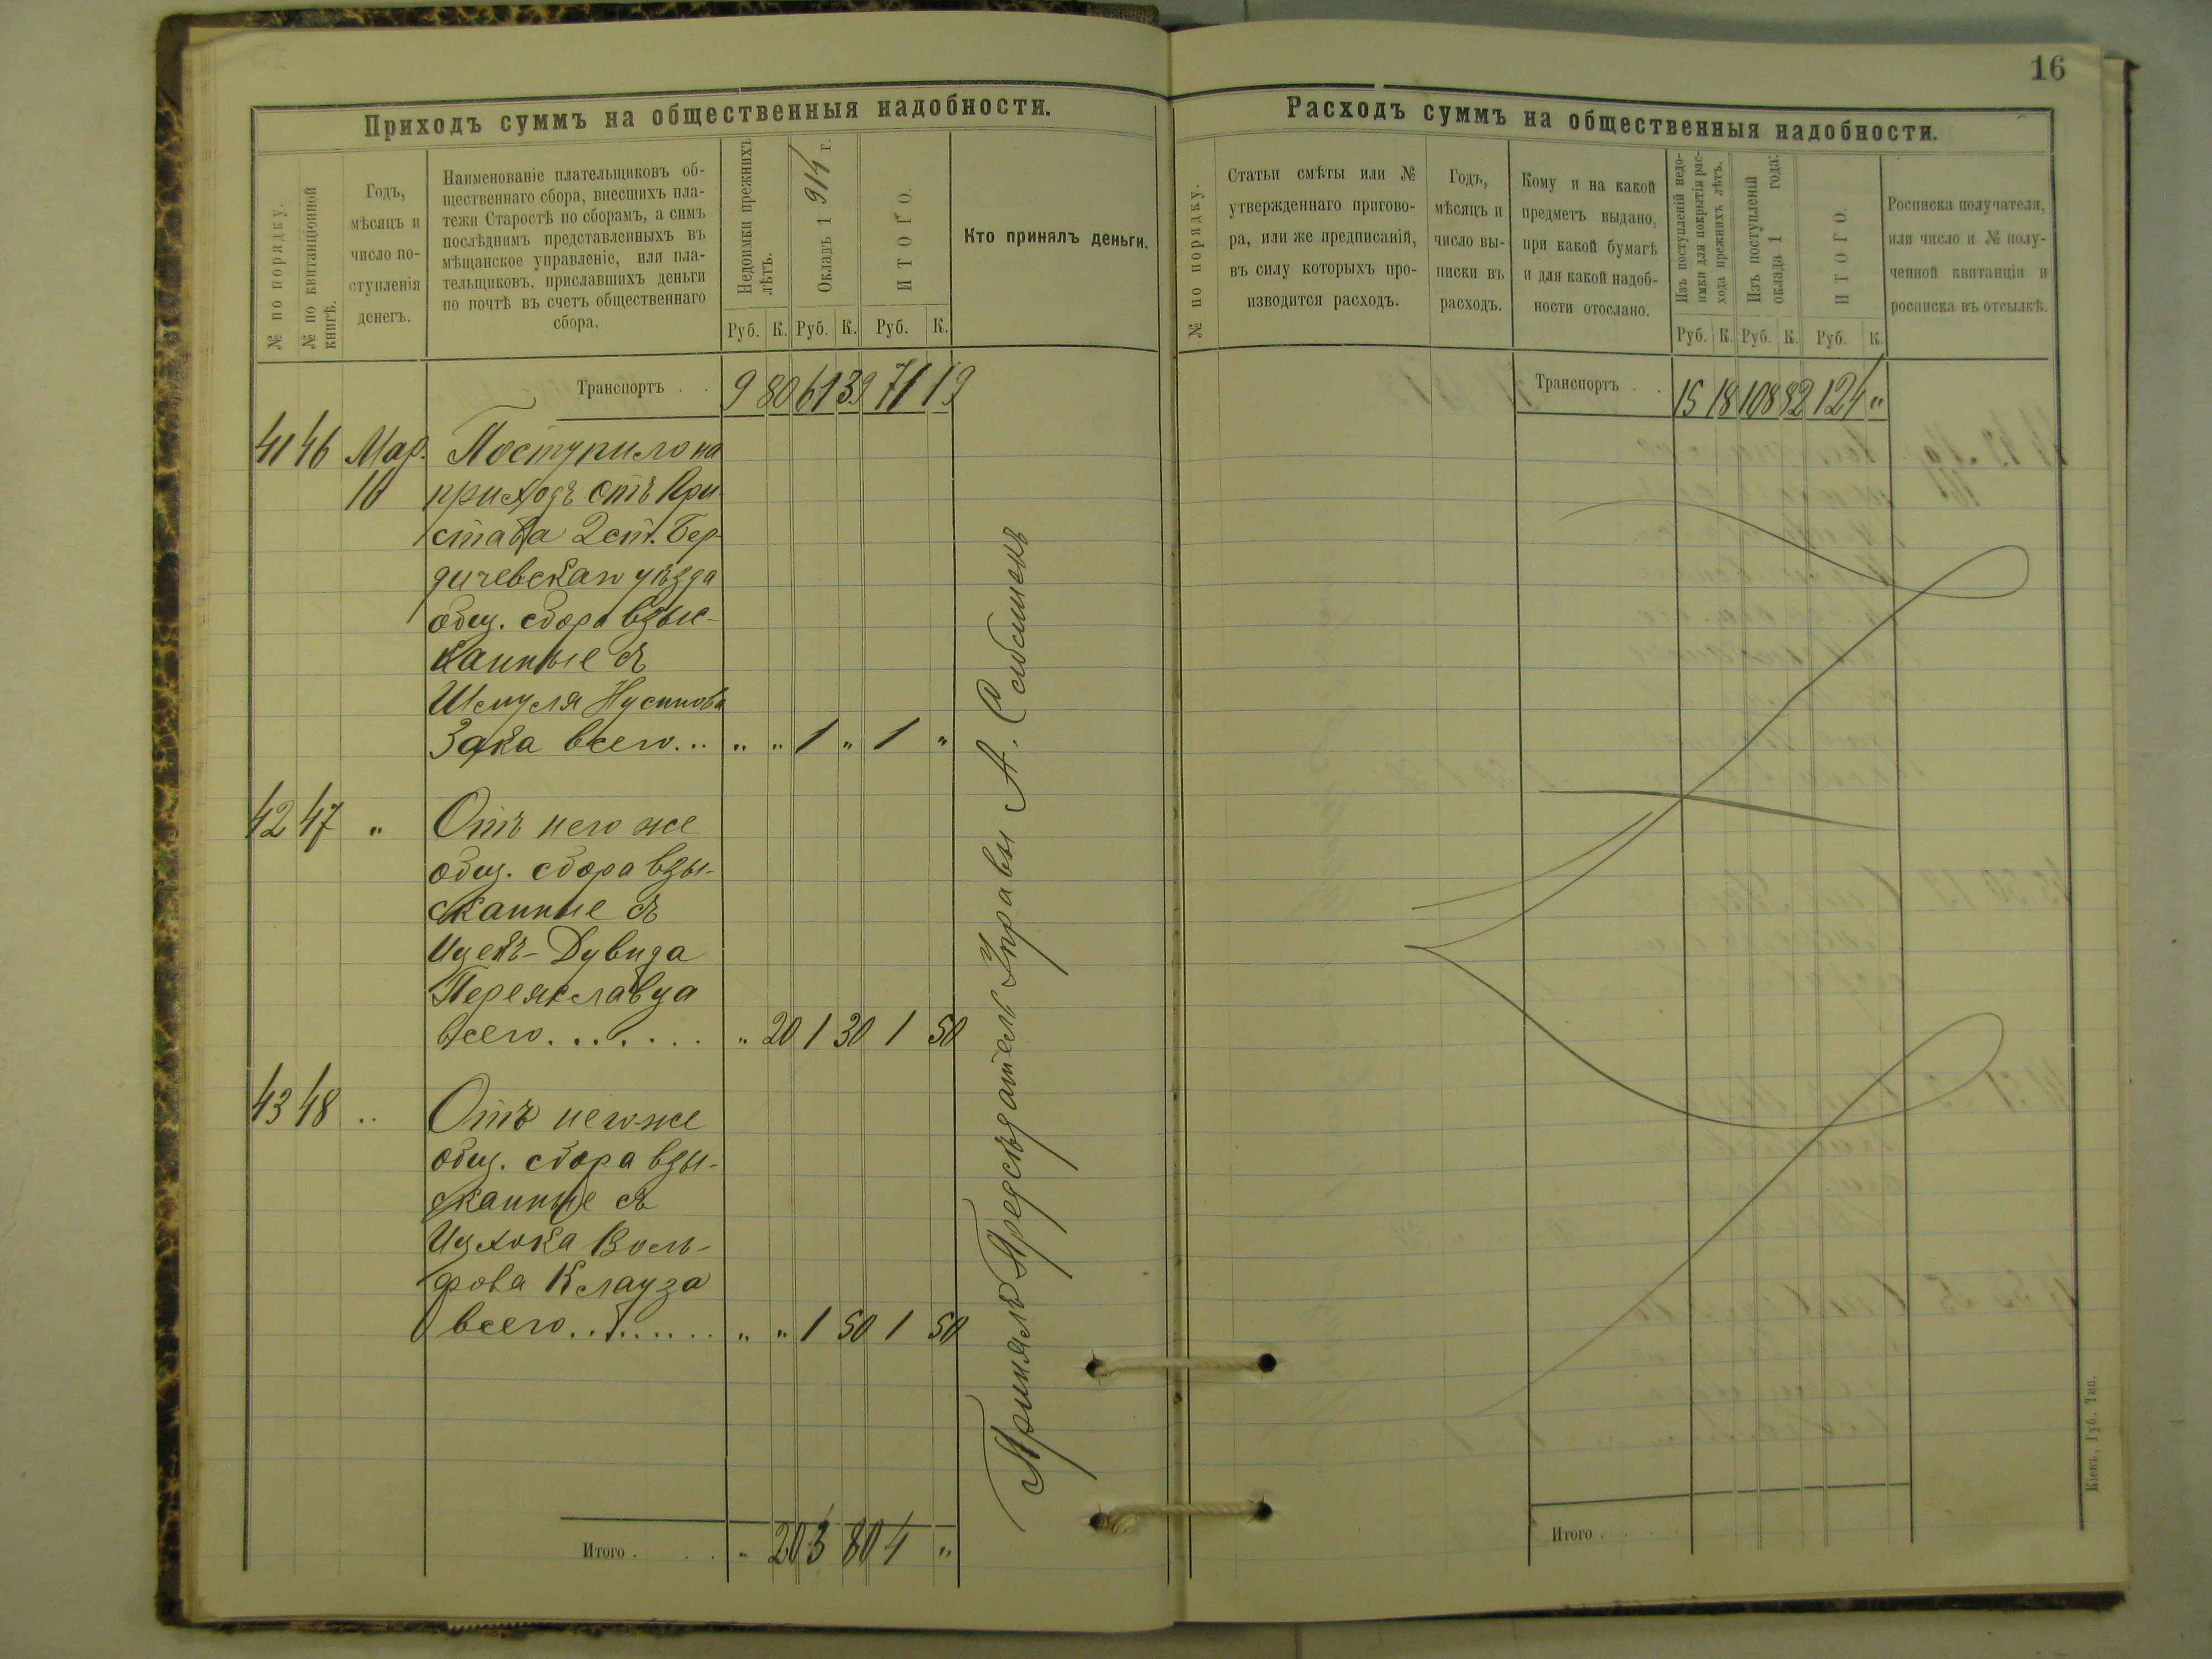 16
Приходъ суммъ на общественныя надобности.
№ по порядку.
№ по квитанціонной
книгѣ.
Годъ,
мѣсяцъ и
число по-
ступленія
денегъ.
Наименованіе плательщиковъ об-
щественнаго сбора, внесшихъ пла-
тежи Старостѣ по сборамъ, а симъ
послѣднимъ представленныхъ въ
мѣщанское управленіе, или пла-
тельщиковъ, приславшихъ деньги
по почтѣ въ счетъ общественнаго
сбора.
Недоимки прежнихъ
лѣтъ.
Окладъ 1914 г.
ИТОГО.
Руб. К. Руб. К. Руб. К.
Кто принялъ деньги.
Транспортъ . . 9 80 61 39 71 19
41 46 Мар. Поступило на
10 приходъ отъ При-
става 2 ст. Бер-
дичевскаго уѣзда
общ. сбора взыс-
канные съ
Шмуля Нусинова
Зака всего... " " 1 " 1 "
42 47 " Отъ него же
общ. сбора взы-
сканные съ
Ицекъ-Дувида
Переяславца
всего....... " 20 1 30 1 50
43 48 " Отъ него-же
общ. сбора взы-
сканные съ
Ицхока Воль-
фова Клауза
всего......... " " 1 50 1 50
Итого . . . . . " 20 3 80 4 "
Принялъ Предсѣдатель Управы А.
Расходъ суммъ на общественныя надобности.
№ по порядку.
Статьи смѣты или №
утвержденнаго пригово-
ра, или же предписаній,
въ силу которыхъ про-
изводится расходъ.
Годъ,
мѣсяцъ и
число вы-
писки въ
расходъ.
Кому и на какой
предметъ выдано,
при какой бумагѣ
и для какой надоб-
ности отослано.
Изъ поступленій недо-
имки для покрытія рас-
хода прежнихъ лѣтъ.
Изъ поступленій
оклада 1 года:
ИТОГО.
Руб. К. Руб. К. Руб. К.
Росписка получателя,
или число и № полу-
ченной квитанціи и
росписка въ отсылкѣ.
Транспортъ . . 15 18 108 82 124 "
Итого . . . . .
Кіевъ, Губ. Тип.